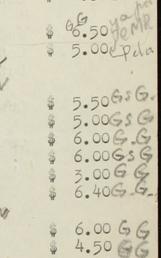 GG
$ 6.50
$ 5.00
$ 5.50 GS G.
$ 5.00 GS G
$ 6.00 G.G
$ 6.00 GS G
$ 3.00 G G
$ 6.40 G.G.
$ 6.00 G G
$ 4.50 G G